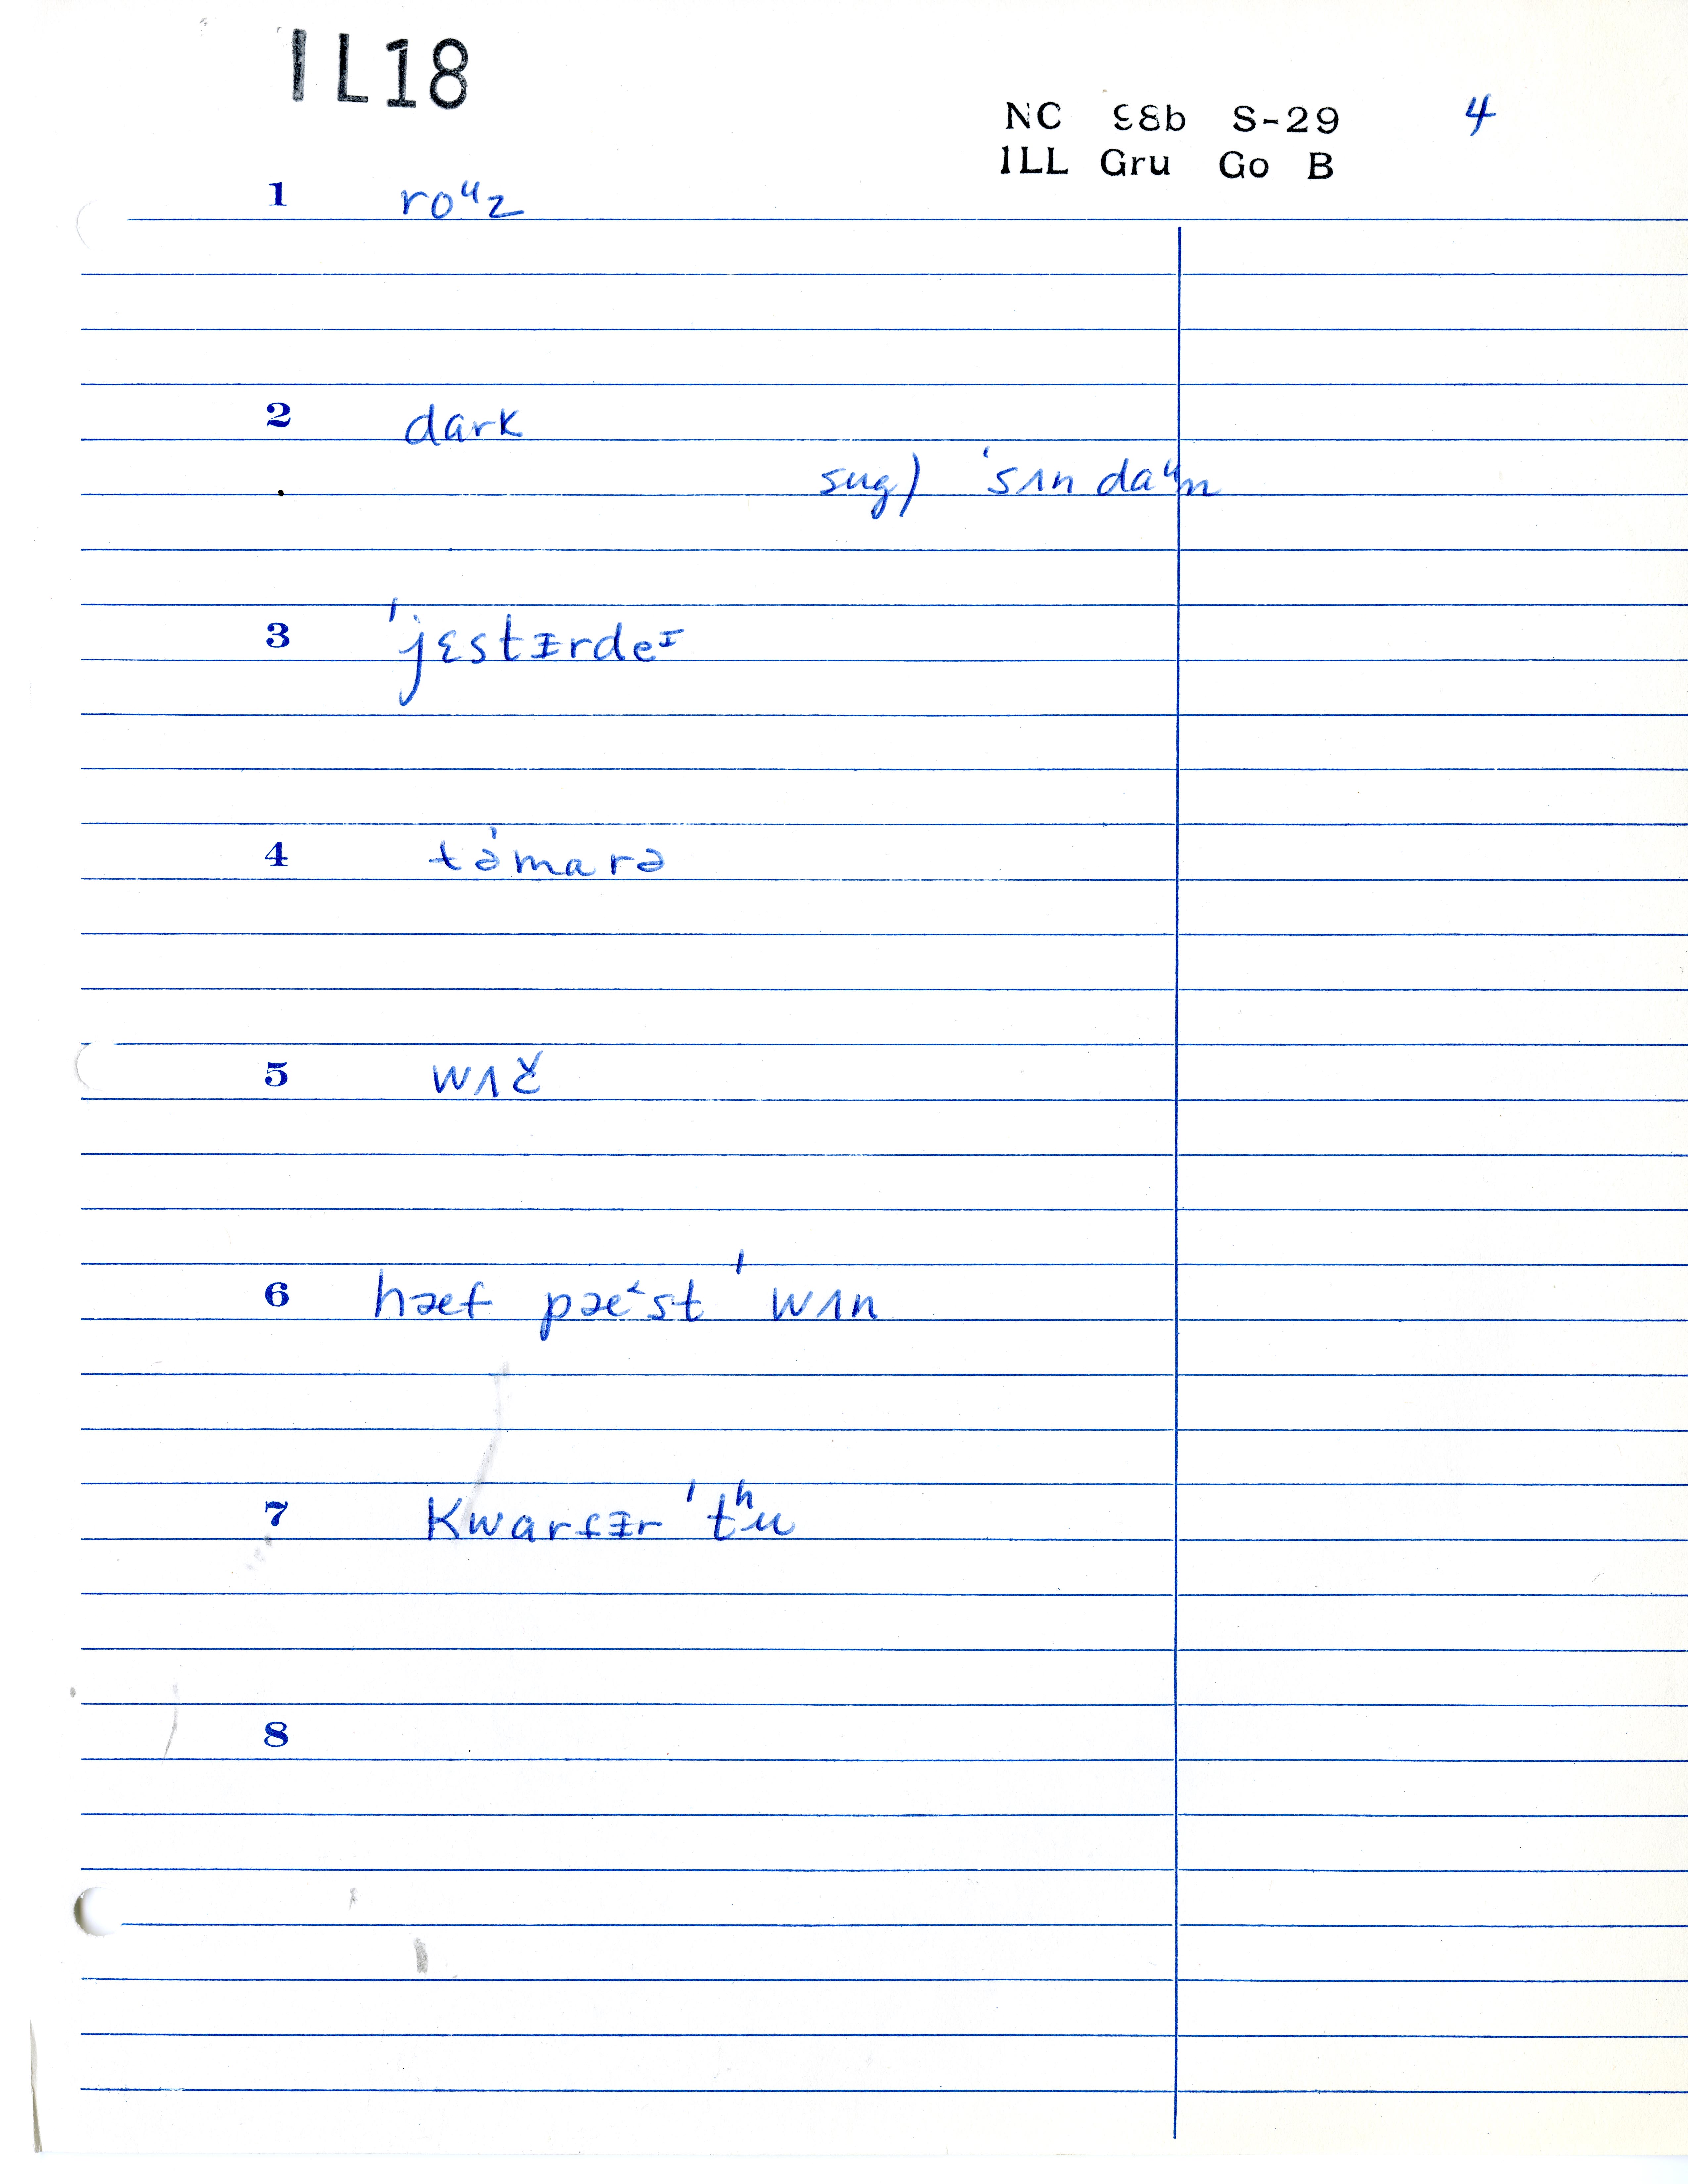 IL18
NC 98b S-29 4
ILL Gru Go B
1 roᵘz
2 dark
sug) ˈsʌn daᵘn
3 ˈjɛstᵻrdeᶦ
4 təˈmarə
5 wʌč
6 hæf pæ˂st ˈwʌn
7 ˈtʰu
8